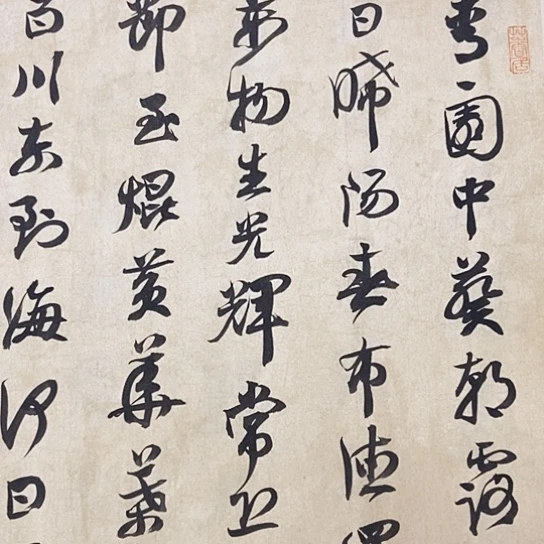 青々園中葵朝露
日晞陽春布德
萬物生光輝常恐
節至焜黃華葉
百川東到海何日